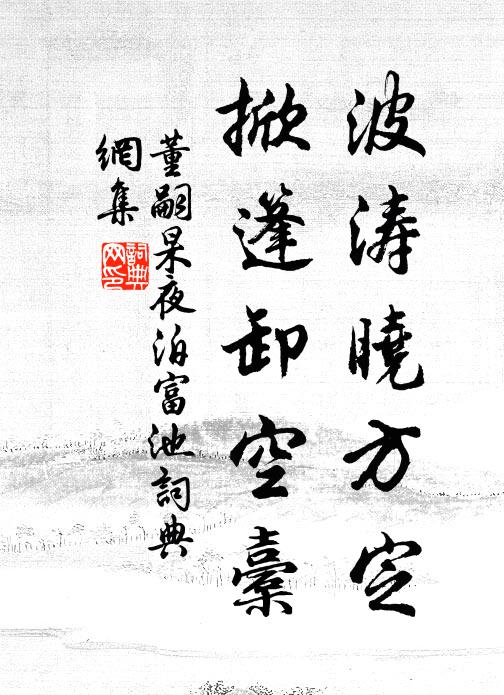 波涛曉方定
掀篷卸空橐
董嗣杲夜泊富池詞典
網集
詞典網印